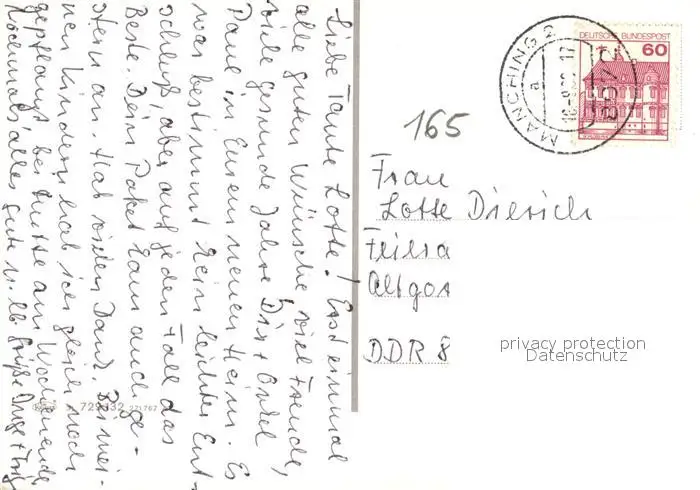 Liebe Tante Lotte! Erst einmal
alle guten Wünsche, viel Freude,
viele gesunde Jahre Dir + Onkel
Paul in Eurem neuen Heim. Es
war bestimmt kein leichter Ent-
schluß, aber auf jeden Fall das
Beste. Dein Paket kam auch ge-
stern an. Hab vielen Dank. Bei mei-
nen Kindern hab ich gleich noch
gepflanzt bei Mutte am Wochenende
Nochmals alles Gute u. lb. Grüße
729 332 271767
MANCHING 2
a
17
DEUTSCHE BUNDESPOST
60
165
Frau
Lotte Dierich
Altgos
DDR 8
privacy protection
Datenschutz